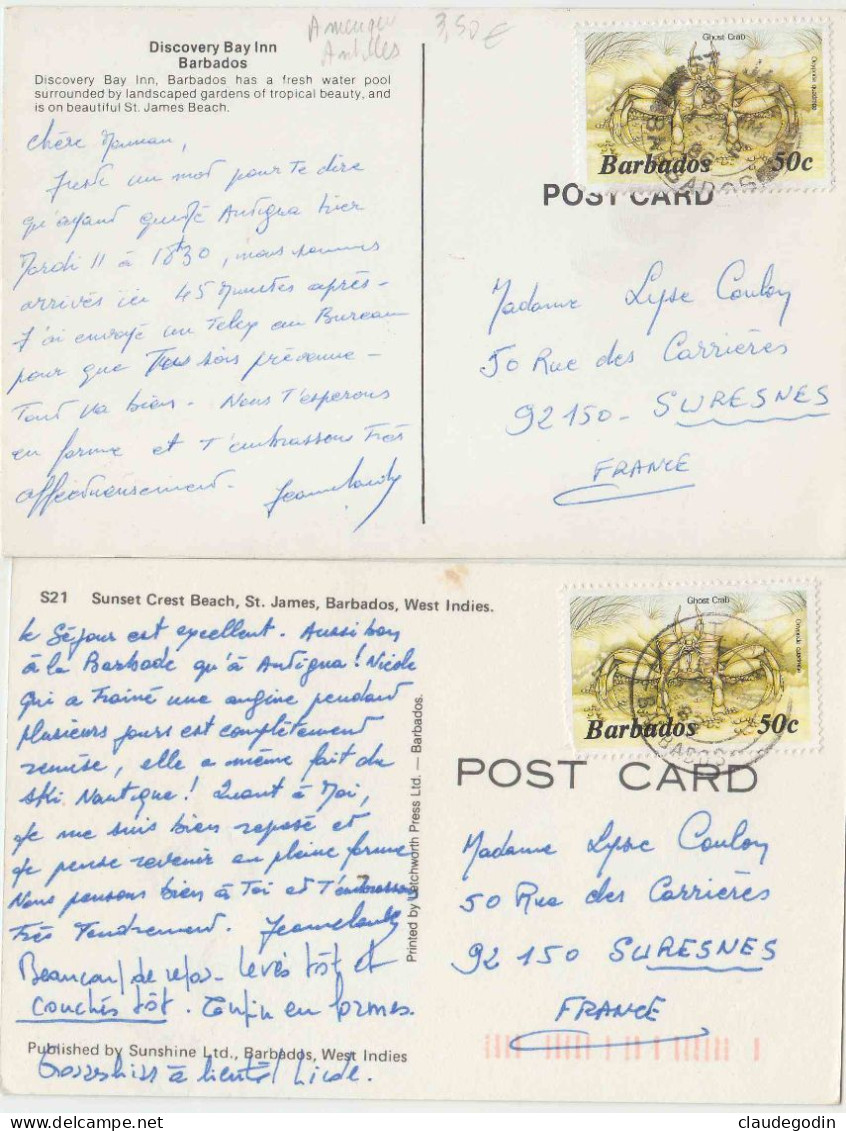 Amérique
Antilles
3,50 €
Discovery Bay Inn
Barbados
Discovery Bay Inn, Barbados has a fresh water pool
surrounded by landscaped gardens of tropical beauty, and
is on beautiful St. James Beach.
Chère Maman,
Juste un mot pour te dire
qu'ayant quitté Antigua hier
Mardi 11 à 18h30, nous sommes
arrivés ici 45 minutes après-
J'ai envoyé un Telex au Bureau
pour que Tu sois prévenue-
Tout va bien- Nous t'espérons
en forme et t'embrassons très
affectueusement-
Ghost Crab
Ocypode quadrata
Barbados 50c
POST CARD
Madame Lyse Coulon
50 Rue des Carrières
92150- SURESNES
FRANCE
S21 Sunset Crest Beach, St. James, Barbados, West Indies.
le Séjour est excellent. Aussi bon
à la Barbade qu'à Antigua! Nicole
qui a traîné une angine pendant
plusieurs jours est complètement
remise, elle a même fait du
ski Nautique! Quant à Moi,
Je me suis bien reposé et
Je pense revenir en pleine forme
Nous pensons bien à Toi et T'embrassons
Très Tendrement.
Beaucoup de repos- levés tôt et
couchés tôt. Enfin en formes.
Published by Sunshine Ltd., Barbados, West Indies
à bientôt
Printed by Letchworth Press Ltd. — Barbados.
Ghost Crab
Ocypode quadrata
Barbados 50c
POST CARD
Madame Lyse Coulon
50 Rue des Carrières
92 150 SURESNES
FRANCE
delcampe.net
claudegodin